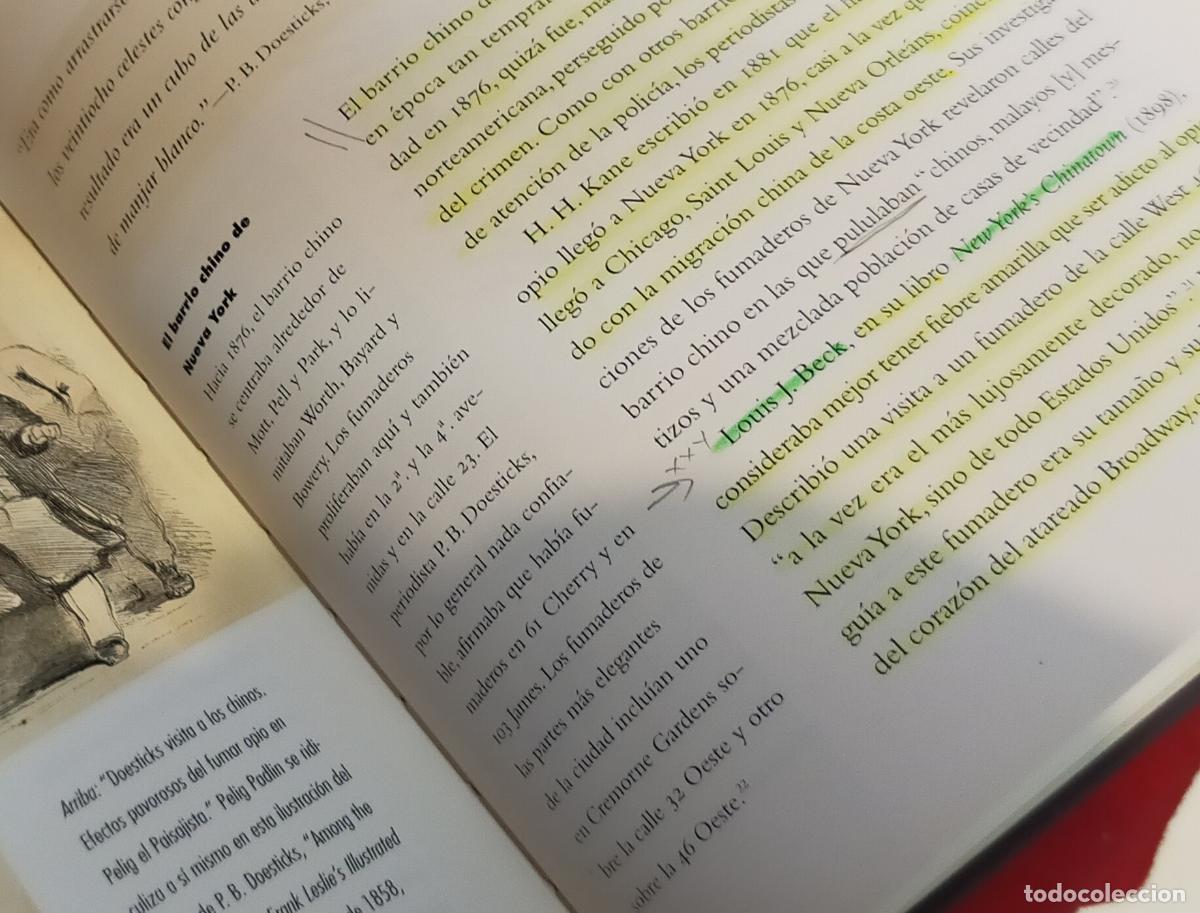 "Era como arrastrarse
los veintiocho celestes
resultado era un cubo de las
de manjar blanco." —P. B. Doesticks,
El barrio chino de
Nueva York
Hacia 1876, el barrio chino
se centraba alrededor de
Mott, Pell y Park, y lo li-
mitaban Worth, Bayard y
Bowery. Los fumaderos
proliferaban aquí y también
había en la 2ª. y la 4ª. ave-
nidas y en la calle 23. El
periodista P. B. Doesticks,
por lo general nada confia-
ble, afirmaba que había fu-
maderos en 61 Cherry y en
103 James. Los fumaderos de
las partes más elegantes
de la ciudad incluían uno
en Cremorne Gardens so-
bre la calle 32 Oeste y otro
sobre la 46 Oeste.²²
El barrio chino
en época tan tempran
dad en 1876, quizá fue,
norteamericana, perseguido
del crimen. Como con otros barrio
de atención de la policía, los periodistas
H. H. Kane escribió en 1881 que el
opio llegó a Nueva York en 1876, casi a la vez que
llegó a Chicago, Saint Louis y Nueva Orleáns,
do con la migración china de la costa oeste. Sus investiga
ciones de los fumaderos de Nueva York revelaron calles del
barrio chino en las que pululaban "chinos, malayos [y] mes-
tizos y una mezclada población de casas de vecindad".
Louis J. Beck, en su libro New York's Chinatown (1898),
consideraba mejor tener fiebre amarilla que ser adicto al opi
Describió una visita a un fumadero de la calle West
"a la vez era el más lujosamente decorado, no
Nueva York, sino de todo Estados Unidos".²¹
guía a este fumadero era su tamaño y su
del corazón del atareado Broadway,
Arriba: "Doesticks visita a los chinos.
Efectos pavorosos del fumar opio en
Pelig el Paisajista." Pelig Padlin se ridi-
culiza a sí mismo en esta ilustración del
de P. B. Doesticks, "Among the
Frank Leslie's Illustrated
de 1858,
todocoleccion